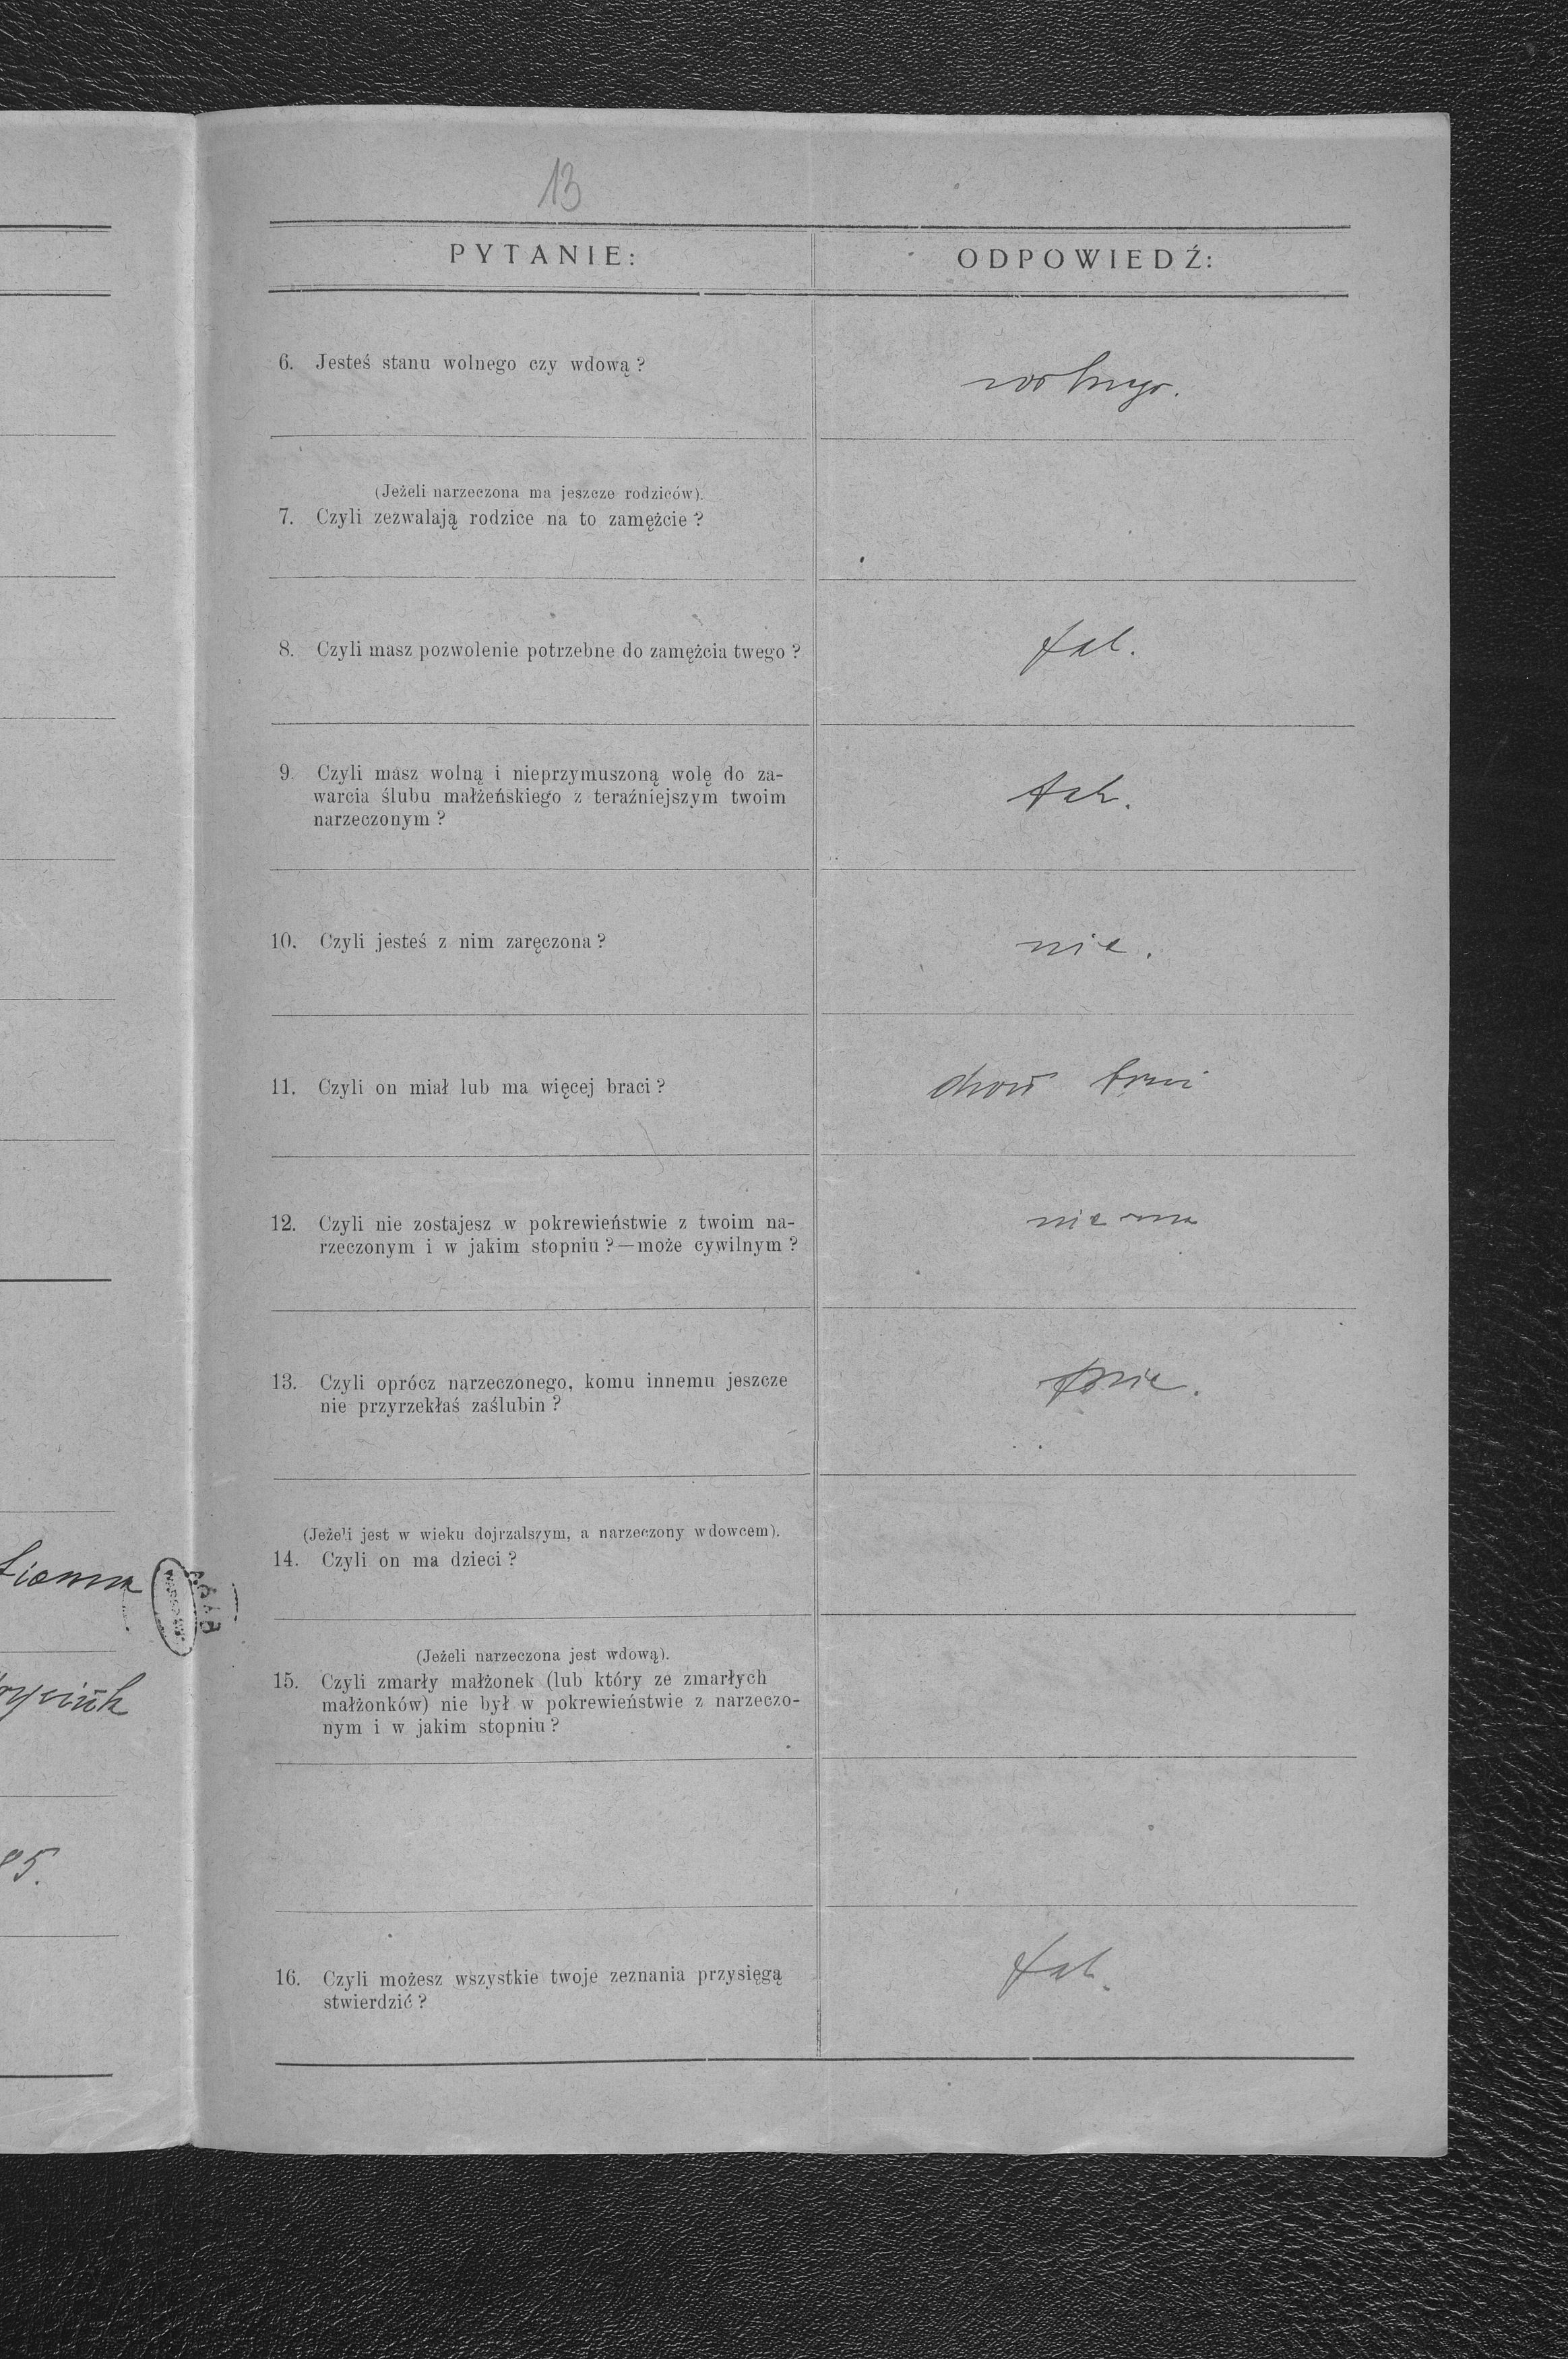 13
PYTANIE:
ODPOWIEDŹ:
6. Jesteś stanu wolnego czy wdową?
wolnego.
(Jeżeli narzeczona ma jeszcze rodziców).
7. Czyli zezwalają rodzice na to zamężcie?
8. Czyli masz pozwolenie potrzebne do zamężcia twego?
tak.
9. Czyli masz wolną i nieprzymuszoną wolę do za-
warcia ślubu małżeńskiego z teraźniejszym twoim
narzeczonym?
tak.
10. Czyli jesteś z nim zaręczona?
nie.
11. Czyli on miał lub ma więcej braci?
braci
12. Czyli nie zostajesz w pokrewieństwie z twoim na-
rzeczonym i w jakim stopniu?—może cywilnym?
nie ma
13. Czyli oprócz narzeczonego, komu innemu jeszcze
nie przyrzekłaś zaślubin?
nie.
(Jeżeli jest w wieku dojrzalszym, a narzeczony wdowcem).
14. Czyli on ma dzieci?
(Jeżeli narzeczona jest wdową).
15. Czyli zmarły małżonek (lub który ze zmarłych
małżonków) nie był w pokrewieństwie z narzeczo-
nym i w jakim stopniu?
16. Czyli możesz wszystkie twoje zeznania przysięgą
stwierdzić?
tak.
85.